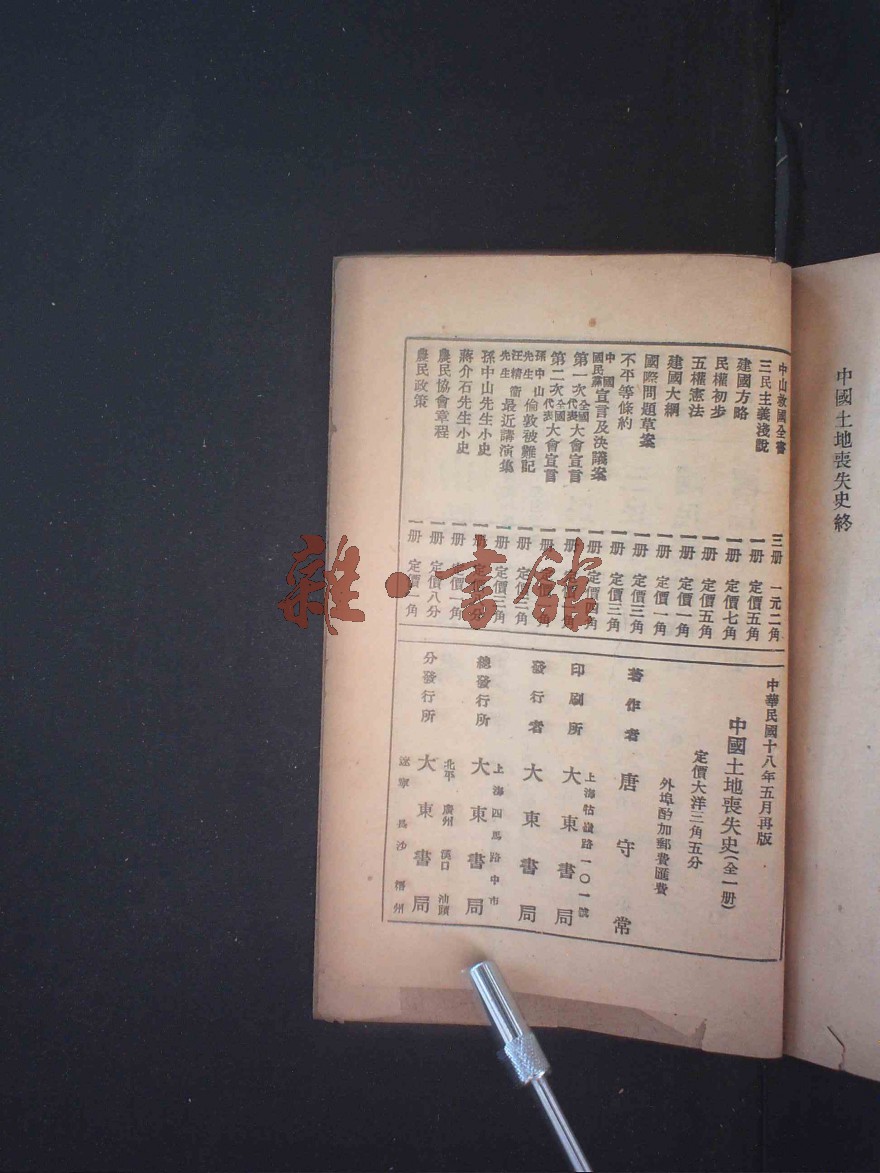 中國土地喪失史終
中山救國全書 三册 一元二角
三民主義淺說 一册 定價五角
建國方略 一册 定價七角
民權初步 一册 定價五角
五權憲法 一册 定價一角
建國大綱 一册 定價一角
國際問題草案 一册 定價三角
不平等條約 一册 定價三角
中國國民黨宣言及決議案 一册 定價四角
第一次全國代表大會宣言 一册 定價
第二次全國代表大會宣言 一册 定價一角
孫中山先生倫敦被難記 一册 定價二角
汪精衞先生最近講演集 一册 定價三角
孫中山先生小史 一册 定價
蔣介石先生小史 一册 定價一角
農民協會章程 一册 定價八分
農民政策 一册 定價一角
中華民國十八年五月再版
中國土地喪失史(全一册)
定價大洋三角五分
外埠酌加郵費匯費
著作者 唐守常
上海牯嶺路一〇一號
印刷所 大東書局
發行者 大東書局
上海四馬路中市
總發行所 大東書局
北平 廣州 漢口 汕頭
分發行所 大東書局
遼寧 長沙 梧州
雜·書館